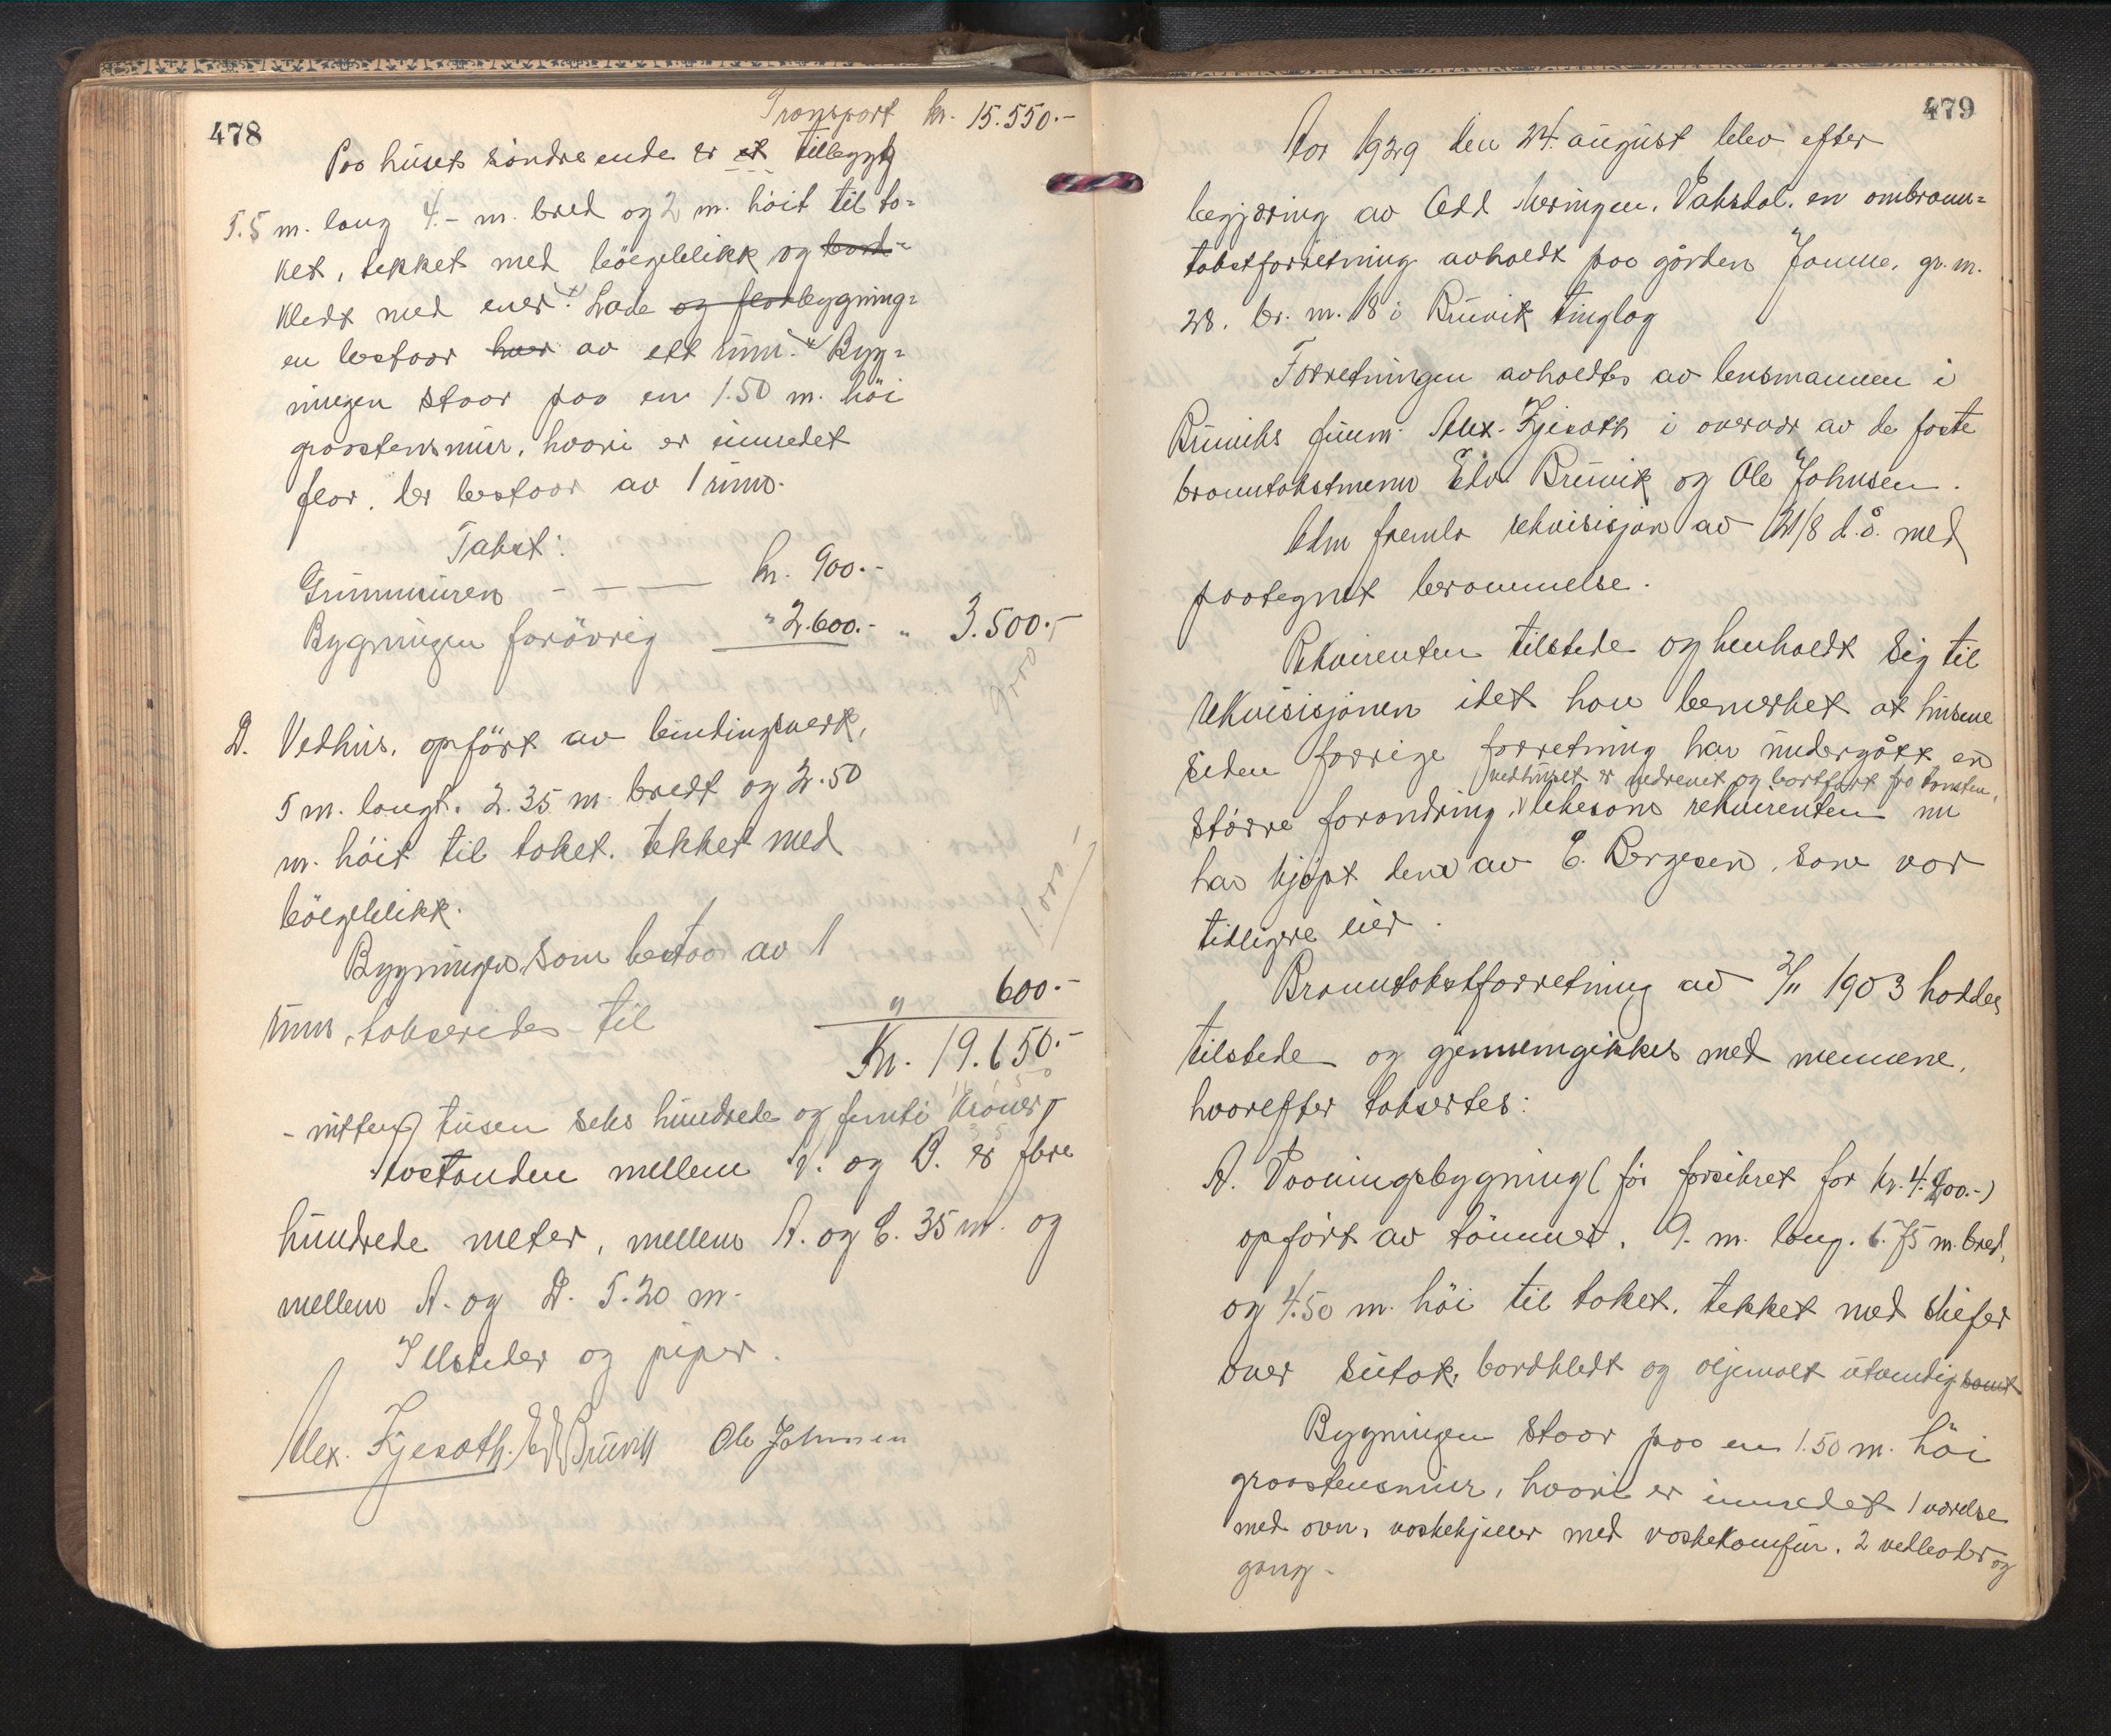 478
Transport kr. 15.550.-
Paa husets søndre ende er et tilbygg
5.5 m. lang 4.- m. bred og 2 m. høit til ta=
ket, tekket med bølgeblikk og bord=
kledt med ener. Lade og florbygning=
en bestaar hver av ett rum. Byg=
ningen staar paa en 1.50 m. høi
graastensmur, hvori er innredet
flor, der bestaar av 1 rum.
Takst:
Grunnmuren - - - kr. 900.-
Bygningen forøvrig " 2.600.- " 3.500.-
D. Vedhus, opført av bindingsverk,
5 m. langt, 2.35 m. bredt og 2.50
m. høit til taket, tekket med
bølgeblikk.
1.000
Bygningen som bestaar av 1
rum, takseredes til " 600.-
Kr. 19.650.-
- nitten tusen seks hundrede og femti kroner
Avstanden mellem A. og B. er flere
hundrede meter, mellem A. og C. 35 m. og
mellem A. og D. 5.20 m.
Ildsteder og piper.
Alex. Gjesath. Edv Bruvik Ole Johnsen
479
Aar 1929 den 24. august blev efter
begjæring av Odd Meringen, Vaksdal, en ombrann=
takstforretning avholdt paa gården Jamne, gr. nr.
28. br. nr. 18 i Bruvik tinglag
Forretningen avholdtes av lensmannen i
Bruviks fullm. Alex. Gjesath i overvær av de faste
branntakstmenn Edv. Bruvik og Ole Johnsen.
Adm fremla rekvisisjon av 21/8 d.å. med
paategnet berammelse.
Rekvirenten tilstede og henholdt sig til
rekvisisjonen idet han bemerket at husene
siden forrige forretning har undergått en
vedhuset er nedrevet og bortført fra tomten,
større forandring, likesom rekvirenten nu
har kjøpt den av E. Bergesen, som var
tidligere eier.
Branntakstforretning av 2/11 1903 haddes
tilstede og gjennemgikkes med mennene,
hvorefter taksertes:
A. Vaaningsbygning (før forsikret for kr. 4.200.-)
opført av tømmer, 9. m. lang, 6.75 m. bred,
og 4.50 m. høi til taket, tekket med skifer
over sutak, bordkledt og oljemalt utvendig samt
Bygningen staar paa en 1.50 m. høi
graastensmur, hvori er innredet 1 værelse
med ovn, vaskekjeller med vaskekomfur, 2 vedboder og
gang.